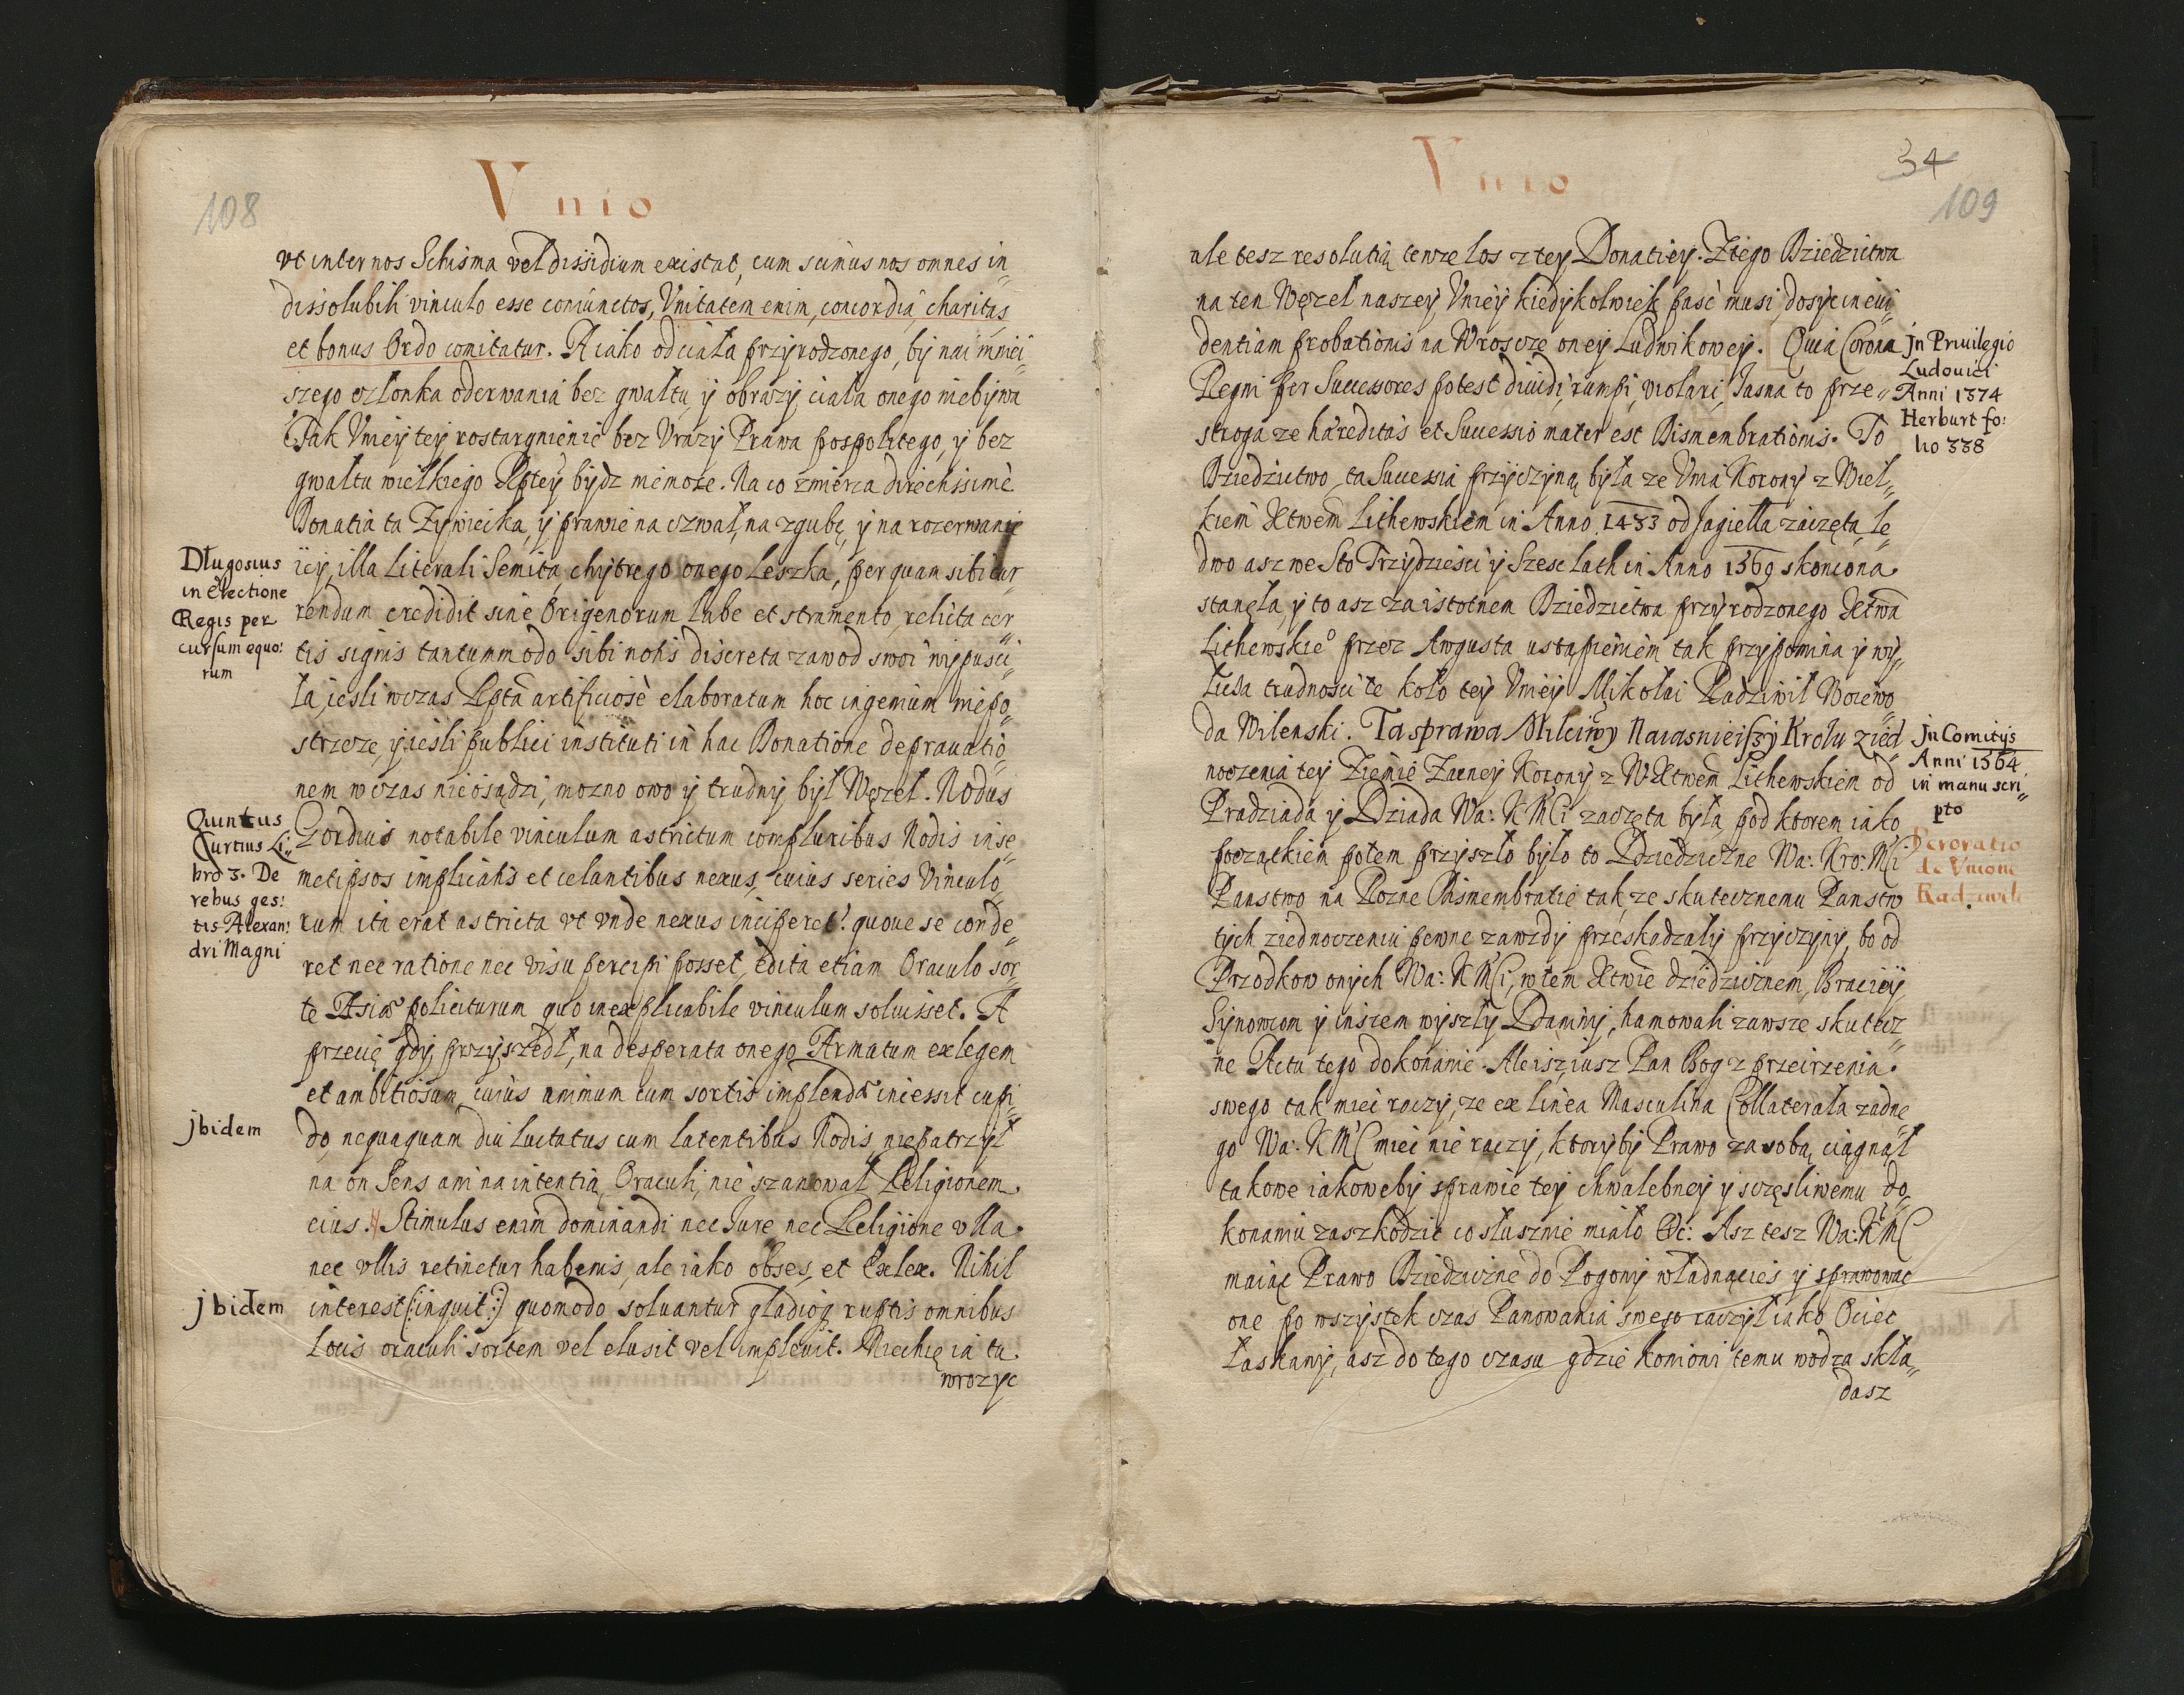 Vnio
108
vt inter nos Schisma vel dissidium existat, cum scimus nos omnes in„
dissolubili vinculo esse coniunctos, Vnitatem enim, concordia, charitas
et bonus Ordo comitatur. A iako od ciała przyrodzonego, by nai mniei„
szego członka oderwania bez gwałtu y obrazy ciała onego niebywa
Tak Vniey tey rostargnienie bez Vrazy Prawa pospolitego, y bez
gwałtu wielkiego Rptey bydz niemoze. Na co zmierza directissimè
Donatia ta Zywiecka, y prawie na czwał, na zgubę, y na rozerwanie
Długosius
in Electione
Regis per
cursum equo:
rum
iey, illa Literali Semita chytrego onego Leszka, per quam sibi cur„
rendum credidit sine Origenorum labe et stramento, relicta cer„
tis signis tantummodo sibi notis discreta zawod swoi wypusci„
ła, iesli wczas Rptā artificiosè elaboratum hoc ingenium niepo„
strzeze, y iesli publici instituti in hac Donatione deprauatio„
nem wczas nieosądzi, mozno owo y trudny był Węzeł. Nodus
Quintus
Curtius Li„
bro 3. De
rebus ges:
tis Alexan:
dri Magni
Gordius notabile vinculum astrictum compluribus Nodis in se„
metipsos implicatis et celantibus nexus, cuius series Vinculo„
rum ita erat astricta vt vnde nexus inciperet? quoue se conde„
ret nec ratione nec visu percipi posset, edita etiam Oraculo sor„
te Asiæ politurum quo inexplicabile vinculum soluisset. A
przecię gdy przyszedł, na desperata onego Armatum exlegem
et ambitiosum, cuius animum cum sortis implendæ incessit cupi„
jbidem
do, nequaquam diu luctatus cum latentibus Nodis, niepatrzył
na on Sens ani na intentią Oraculi, nie szanował Religionem
eius. Stimulus enim dominandi nec Jure nec Religione vlla
nec vllis retinetur habenis, ale iako obses, et Exlex. Nihil
jbidem
interest (:inquit:) quomodo soluantur gladioq ruptis omnibus
Locis oraculi sortem vel elusit vel impleuit. Niechię ia tu
wrozyc
Vnio
34
109
ale tesz resolutią tenze los z tey Donatiey. Z tego Dziedzictwa
na ten Węzeł naszey Vniey kiedykolwiek paść musi, dosyc in eui„
dentiam probationis na Wroscze oney Ludwikowey. Quia Corona
jn Priuilegio
Ludouici
Anni 1374
Herburt fo:
lio 338
Regni per Successores potest diuidi, rumpi, violari, Jasna to prze„
stroga ze hæreditas et Successio mater est Dismembrationis. To
Dziedzictwo, ta Successia przyczyną była ze Vnia Korony z Wiel„
kiem Xtwem Lithewskiem in Anno 1433 od Jagiełła zaczęta, le„
dwo asz we Sto Trzydziesci y Szesc lath in Anno 1569 skonczona
stanęła, y to asz za istotnem Dziedzictwa przyrodzonego Xtwa
Lithewskieo przez Awgusta ustąpieniem tak przypomina y wy„
licza trudnosci te koło tey Vniey Mikołai Radziwił Woiewo„
da Wilenski. Ta sprawa Miłciwy Naiasnieiszy Krolu zied„
jn Comitijs
Anni 1564
in manu scri„
pto
Peroratio
de Vnione
Radziwili
noczenia tey Ziemie Zacney Korony z W. Xtwem Lithewskiem od
Pradziada y Dziada Wa: KMCi zaczęta była, pod ktorem iako
początkiem potem przyszło było to Dziedziczne Wa: Kro: MCi
Panstwo na Rozne Dismembratie tak, ze skutecznemu Panstw
tych ziednoczeniu pewne zawzdy przeskadzały przyczyny, bo od
Przodkow onych Wa: KMCi, w tem Xtwie dziedzicznem, Braciey,
Synowcom y inszem wyszły Daniny, hamowali zawsze skutecz„
ne Actu tego dokonanie. Ale isz iusz Pan Bog z przeirzenia
swego tak miec raczy, ze ex linea Masculina Collaterala zadne„
go Wa: KMC miec nie raczy, ktoryby Prawo za sobą ciągnął
takowe iakoweby sprawie tey chwalebney y sczęsliwemu do„
konaniu zaszkodzic co słusznie miało &c: Asz tesz Wa: KMC
maiąc Prawo Dziedziczne do Pogony władnącies y sprawowac
one po wszystek czas Panowania swego raczył iako Ociec
Łaskawy, asz do tego czasu gdzie koniom temu wodza skła„
dasz